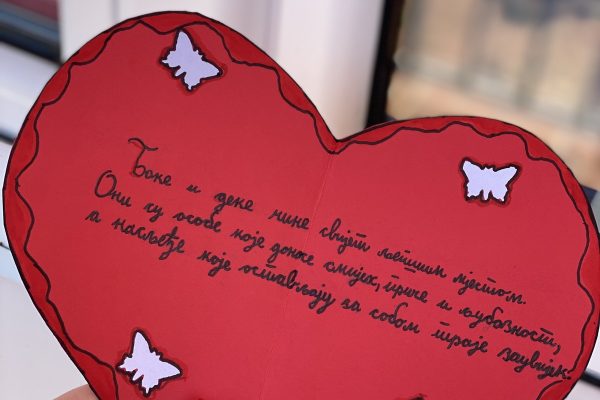 Баке и деке чине свијет љепшим мјестом.
Они су особе које доносе смијех, приче и љубазност,
а насљеђе које остављају за собом траје заувијек.